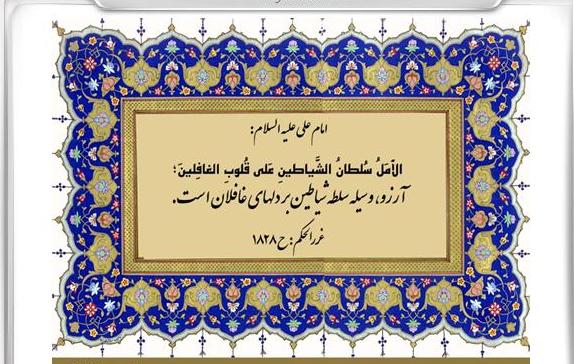 امام علی علیه السلام:
الأمَلُ سُلطانُ الشَّیاطینِ عَلی قُلوبِ الغافِلینَ؛
آرزو، وسیله سلطه شیاطین بر دلهای غافلان است.
غررالحکم: ح ۱۸۲۸